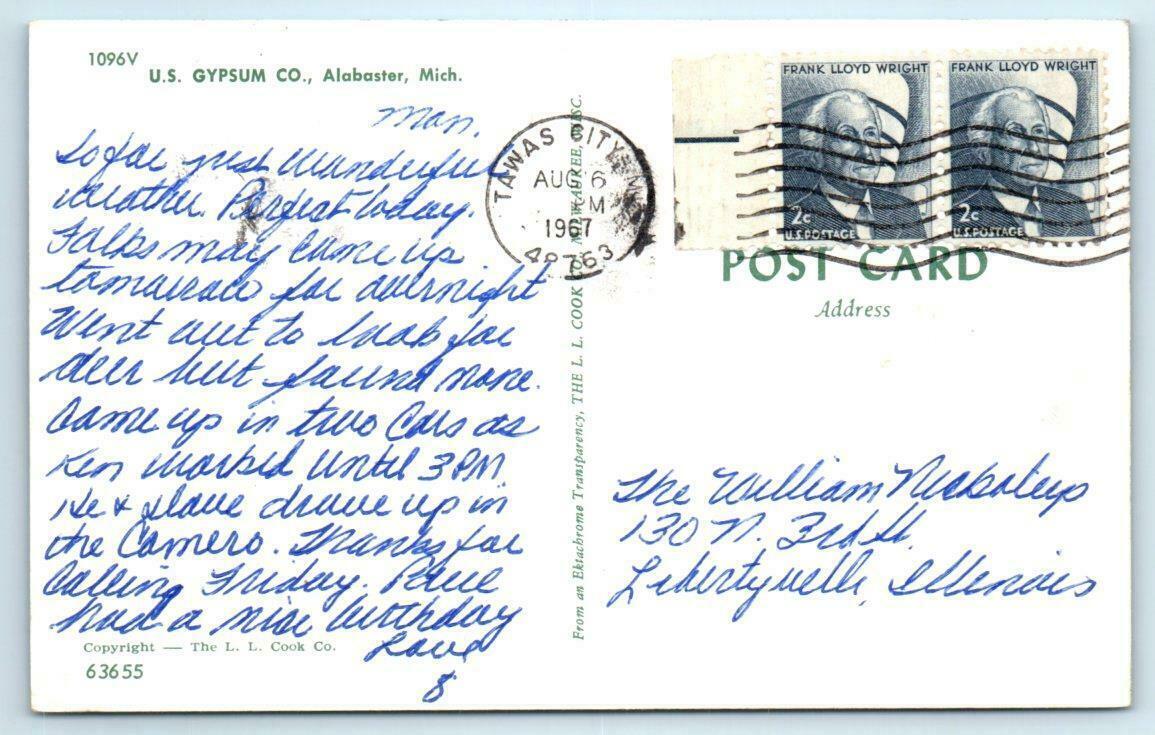 1096V
U.S. GYPSUM CO., Alabaster, Mich.
Mon.
So far just wonderful
weather. Perfect today.
Folks may come up
tomorrow for overnight
Went out to look for
deer but found none.
Came up in two cars as
Ken worked until 3 PM.
He & Dave drove up in
the Camero. Thanks for
calling Friday. Paul
had a nice birthday
Love
8
Copyright — The L. L. Cook Co.
63655
From an Ektachrome Transparency, THE L. L. COOK CO., MILWAUKEE, WISC.
TAWAS CITY, MI
AUG 6
AM
1967
48763
FRANK LLOYD WRIGHT
2c
U.S. POSTAGE
FRANK LLOYD WRIGHT
2c
U.S. POSTAGE
POST CARD
Address
The William
130 N. 3rd St.
Libertyville, Illinois